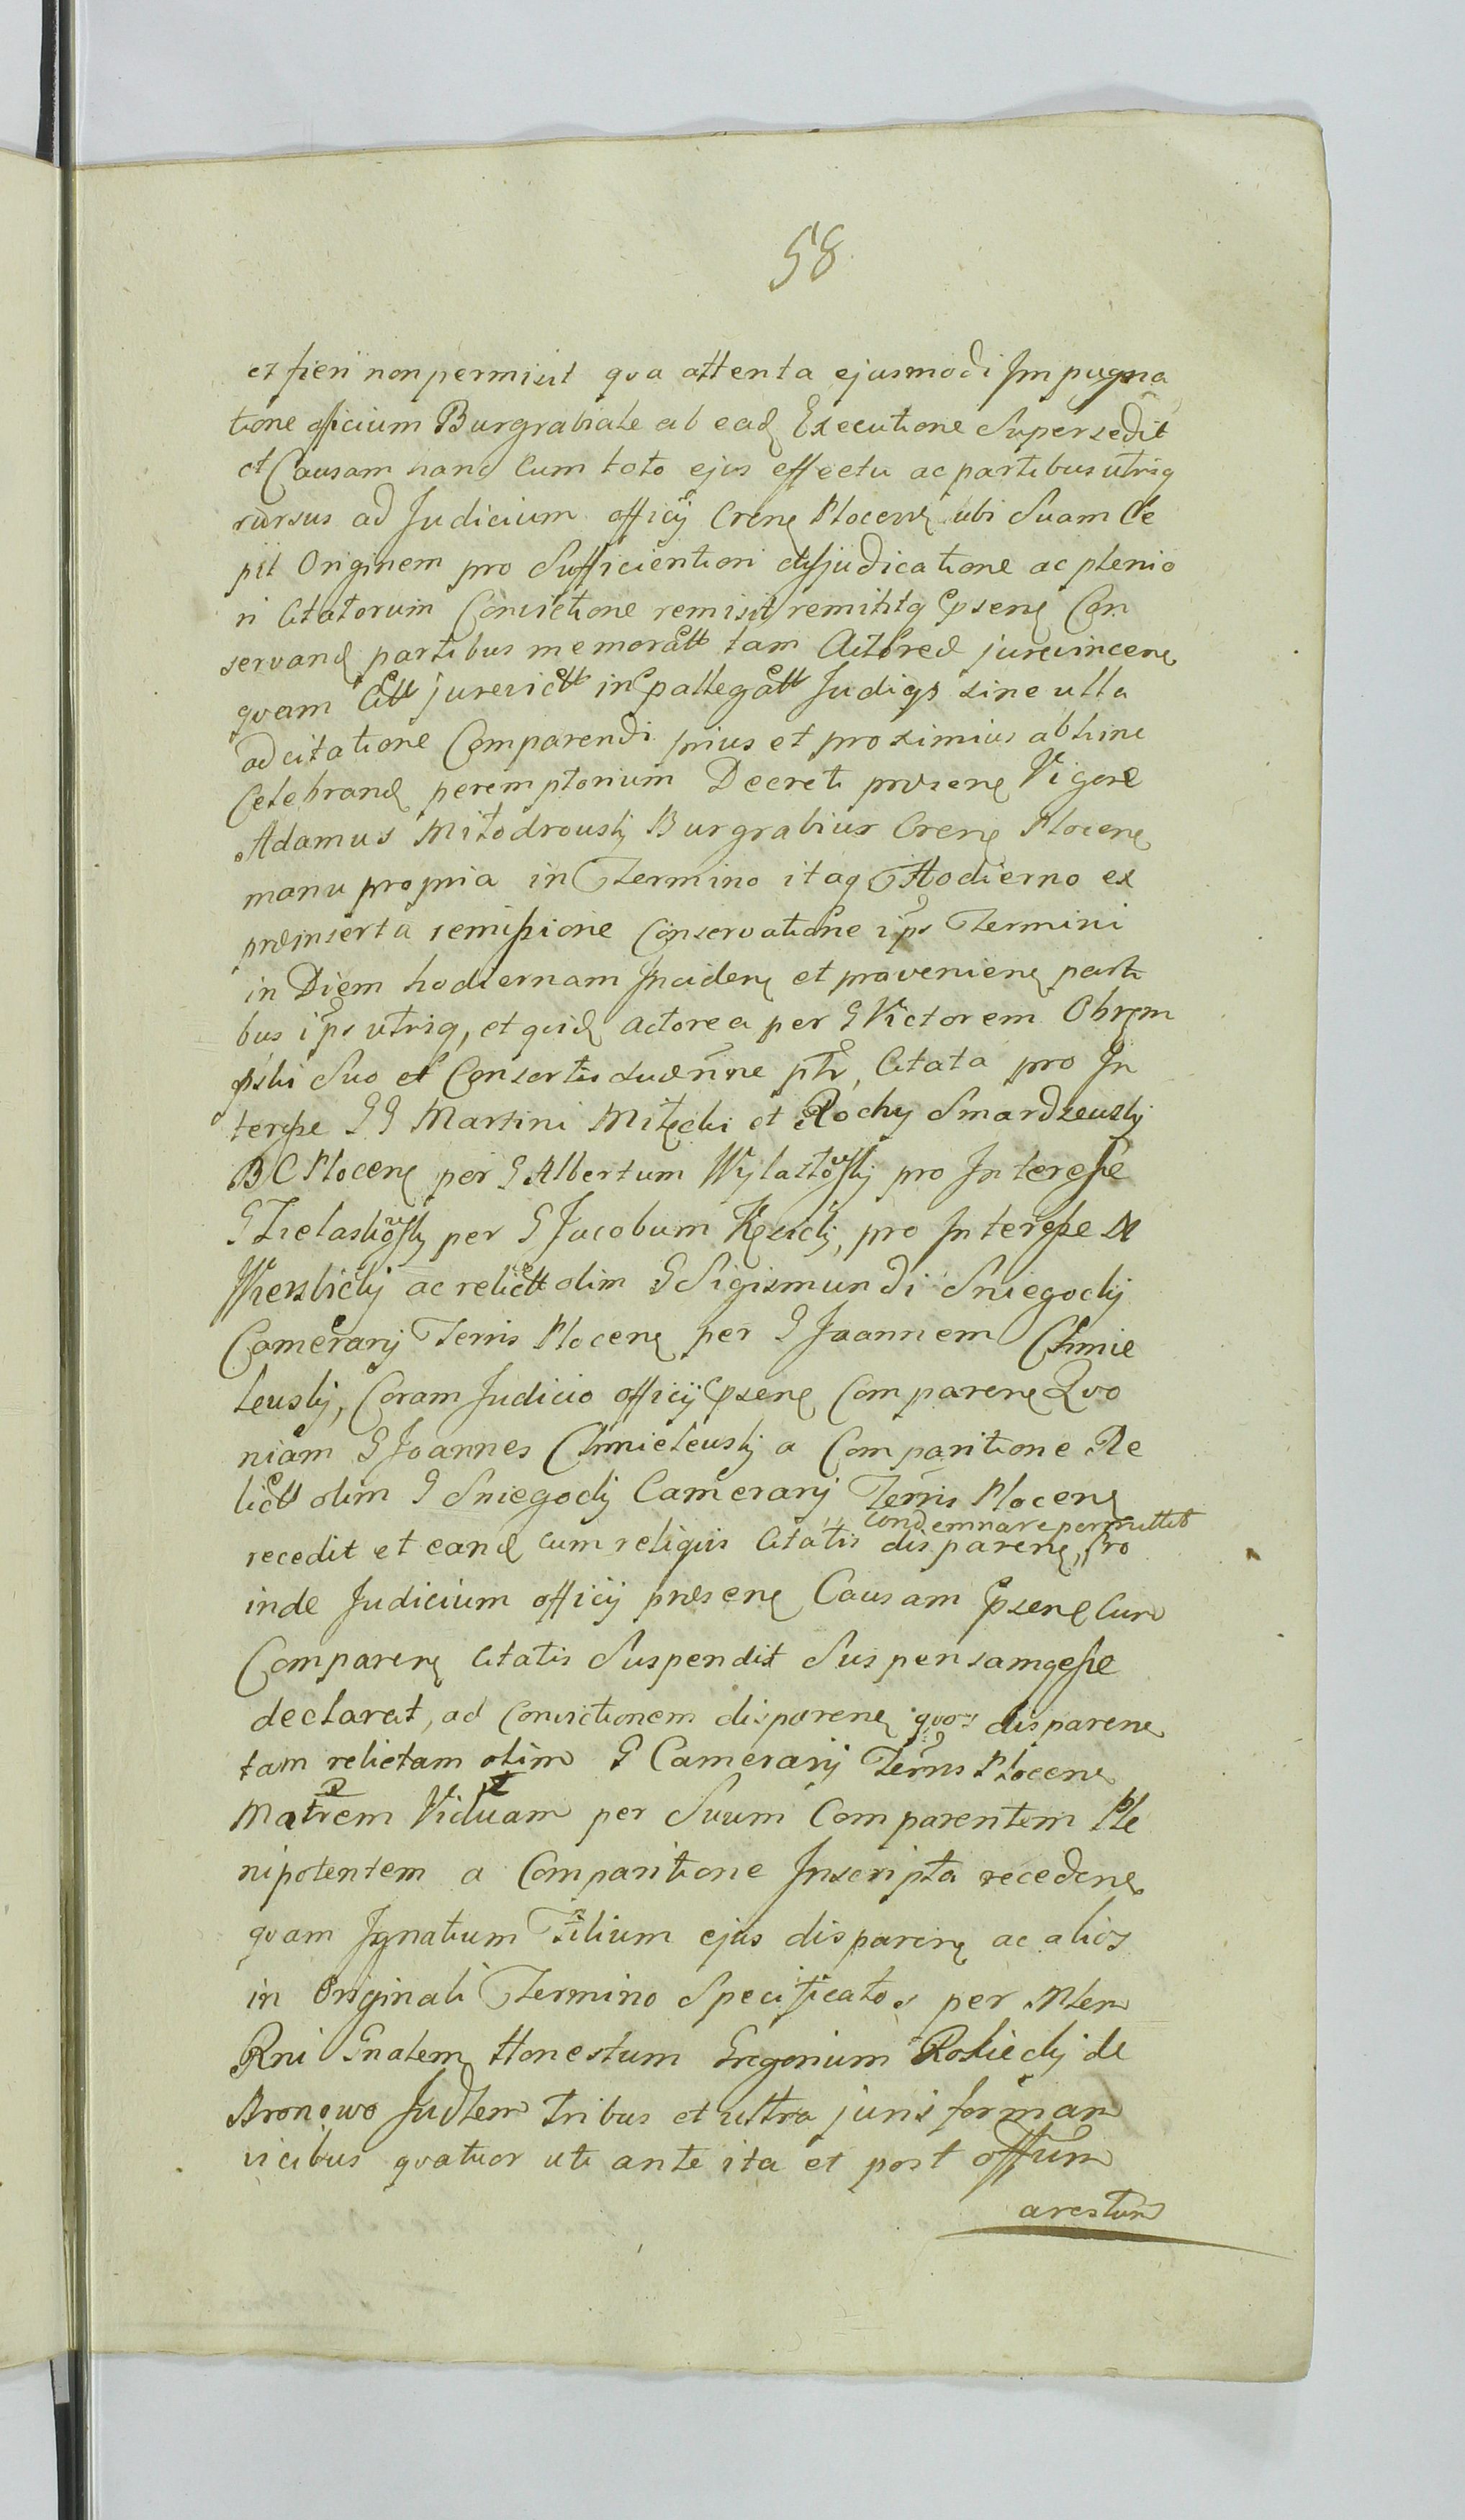 58
et fieri non permisit qva attenta ejusmodi Impugna
tione officium Burgrabiale ab ead Executione Supersedit
et Causam hanc Cum toto ejus effectu ac partibus utrisq
rursus ad Judicium officij Crensę Plocensę ubi Suam Ce
pit Originem pro Sufficientiori disjudicatione ac plenio
ri Citatorum Convictione remisit, remittitq psenę Con
servand partibus memoratt tam Actored jurevincenę
qvam Citt jurevictt in pallegatt Judicys sine ulla
adcitatione Comparendi prius et proximius abhinc
Celebrand peremptorium Decreti præsenę Vigore
Adamus Miłodrouskj Burgrabius Crenę Plocenę
manu propria in Termino itaq Hodierno ex
præinserta remissione Conservatione ips Termini
in Diem hodiernam Incidenę et provenienę parti
bus ips utrisq, et qvid actorea per G Victorem Obręm
pski Suo et Consortis suæ nne pth, Citata pro In
teresse GG Martini Miłęcki et Rochy Smardzeuskj
BC Plocenę per G Albertum Wylazłoskj pro Interesse
G Zielaskoskj per G Jacobum Kęsickj, pro Interesse M
Wierzbickj ac relictt olim G Sigismundi Sniegockj
Camerarij Terris Plocenę per G Joannem Chmie
leuskj, Coram Judicio officij psenę Comparenę Qvo
niam G Joannes Chmieleuskj a Comparitione Re
lictt olim G Sniegockj Camerarij Terris Plocenę
condemnare permittit
recedit et eand cum reliquis Citatis disparenę, Pro
inde Judicium officij præsenę Causam psenę Cum
Comparenę Citatis Suspendit Suspensamqesse
declarat, ad Convictionem disparenę qvos disparenę
tam relictam olim G Camerarij Terris Plocenę
Matrem Viduam per Suum Comparentem Ple
nipotentem a Comparitione Inscripta recedenę
qvam Ignatium Filium ejus disparenę ac alios
in Originali Termino Specificatos per Mlem
Rni Gnalem Honestum Gregorium Rosieckj de
Bronowo Judlem tribus et ultra juris formam
vicibus qvatuor uti ante ita et post offum
arestum